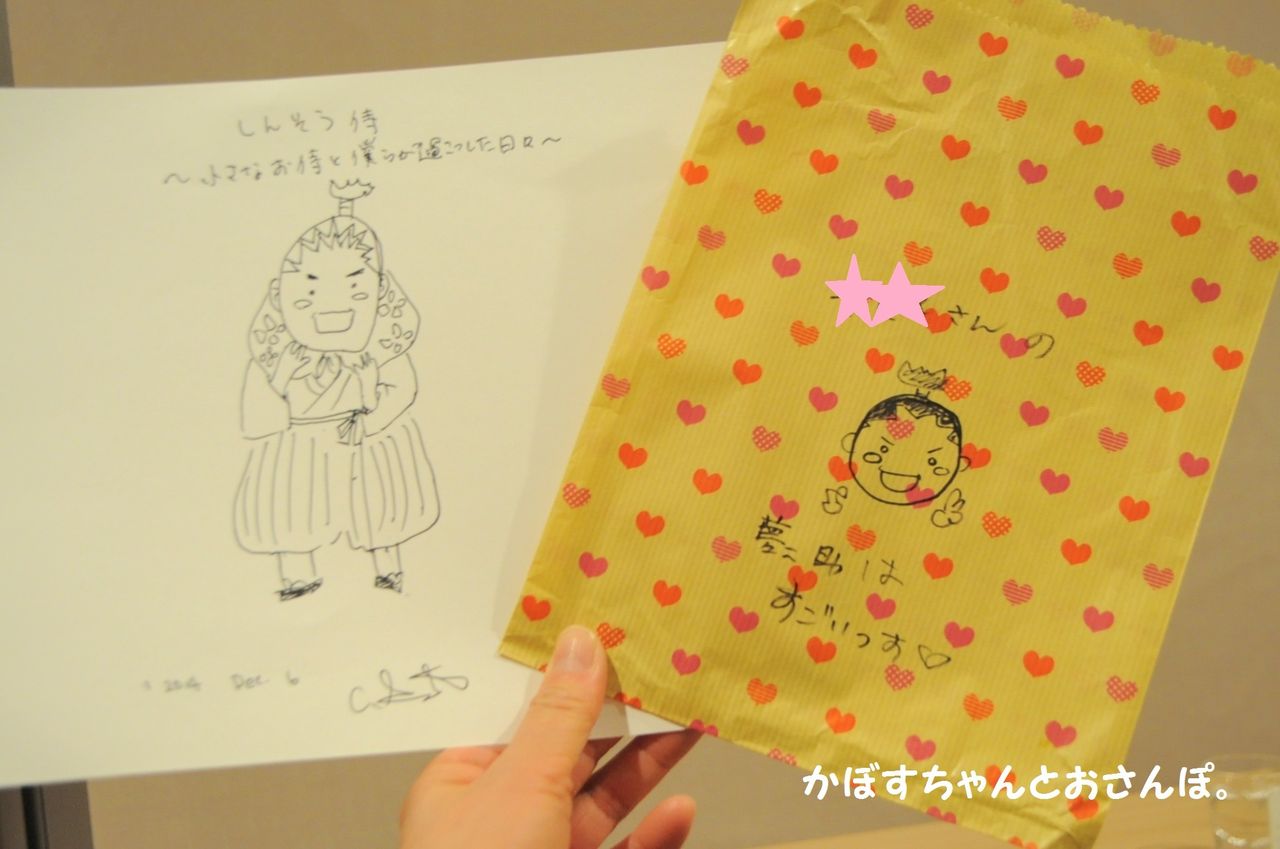 しんそう侍
〜小さなお侍と僕らが過ごした日々〜
2014 Dec 6
さんの
夢二助は
すごいっす♡
かぼすちゃんとおさんぽ。